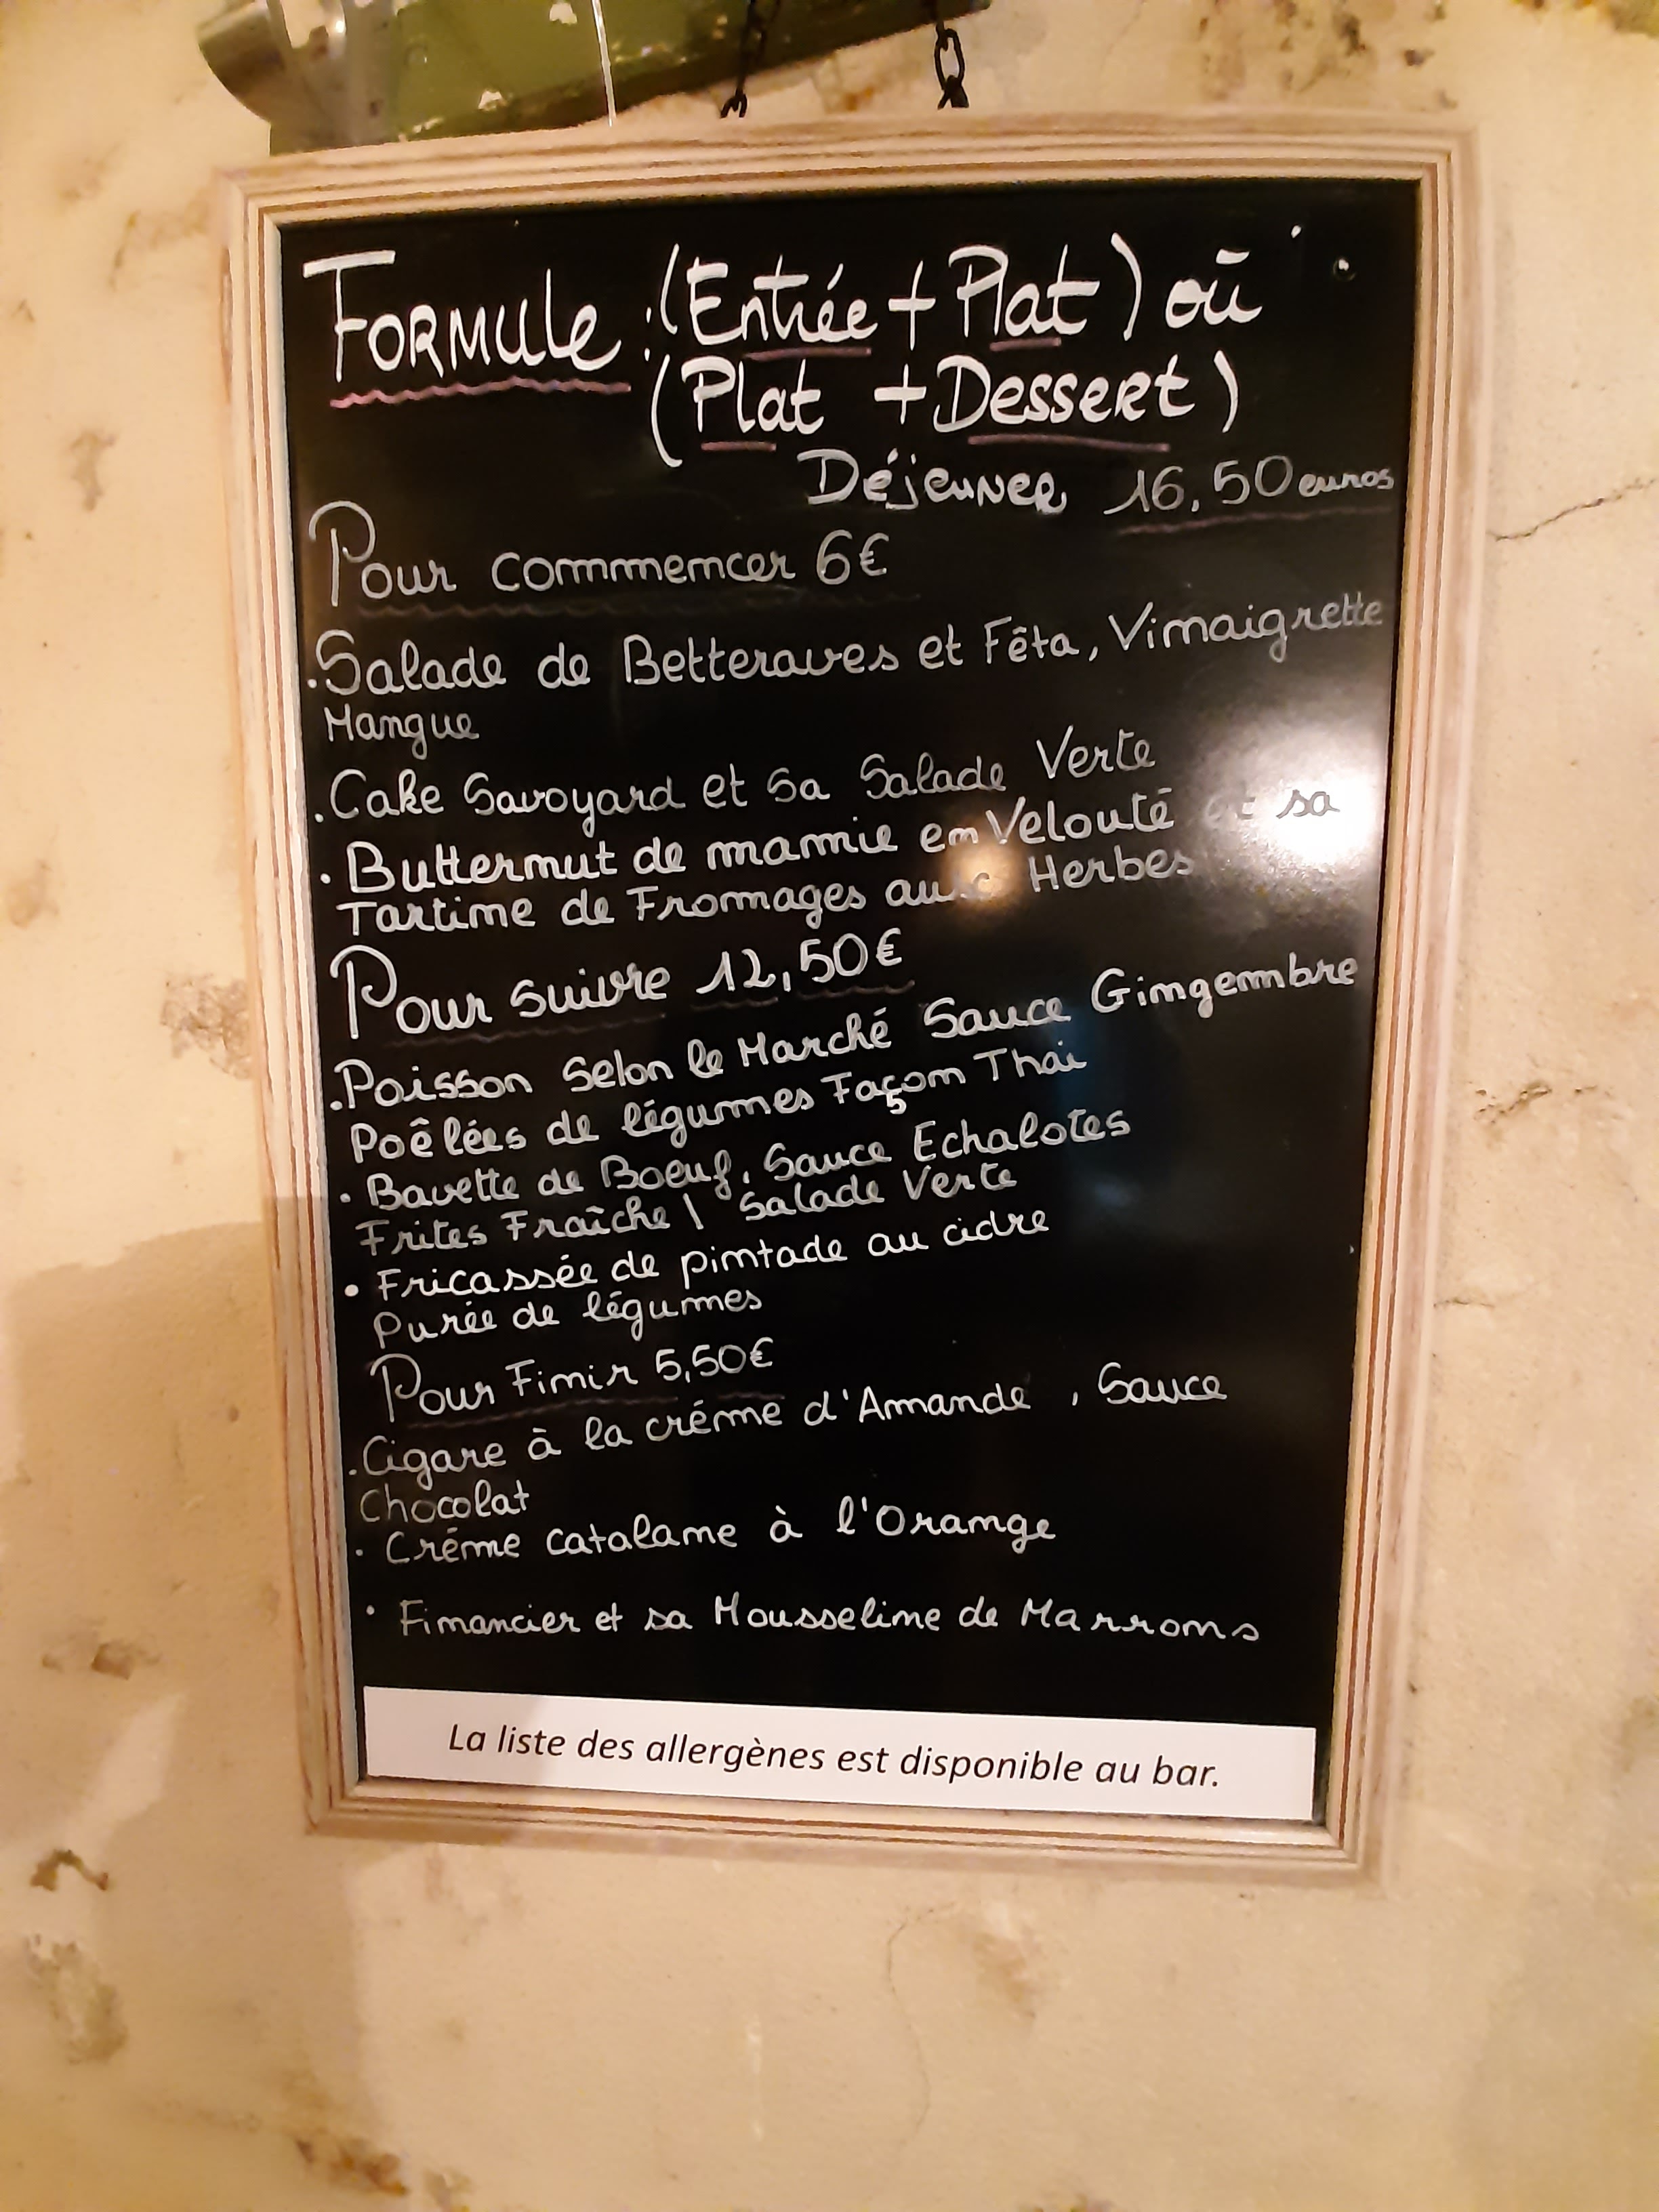 Formule : (Entrée + Plat) où
(Plat + Dessert)
Déjeuner 16,50 euros
Pour commencer 6€
. Salade de Betteraves et Fêta, Vinaigrette
Mangue
. Cake Savoyard et sa Salade Verte
. Butternut de mamie en Velouté et sa
Tartine de Fromages aux Herbes
Pour suivre 12,50€
. Poisson Selon le Marché Sauce Gingembre
Poêlées de légumes Façon Thai
. Bavette de Boeuf, Sauce Echalotes
Frites Fraîche \ Salade Verte
• Fricassée de pintade au cidre
Purée de légumes
Pour Finir 5,50€
. Cigare à la créme d'Amande , Sauce
Chocolat
. Créme catalane à l'Orange
. Financier et sa Mousseline de Marrons
La liste des allergènes est disponible au bar.